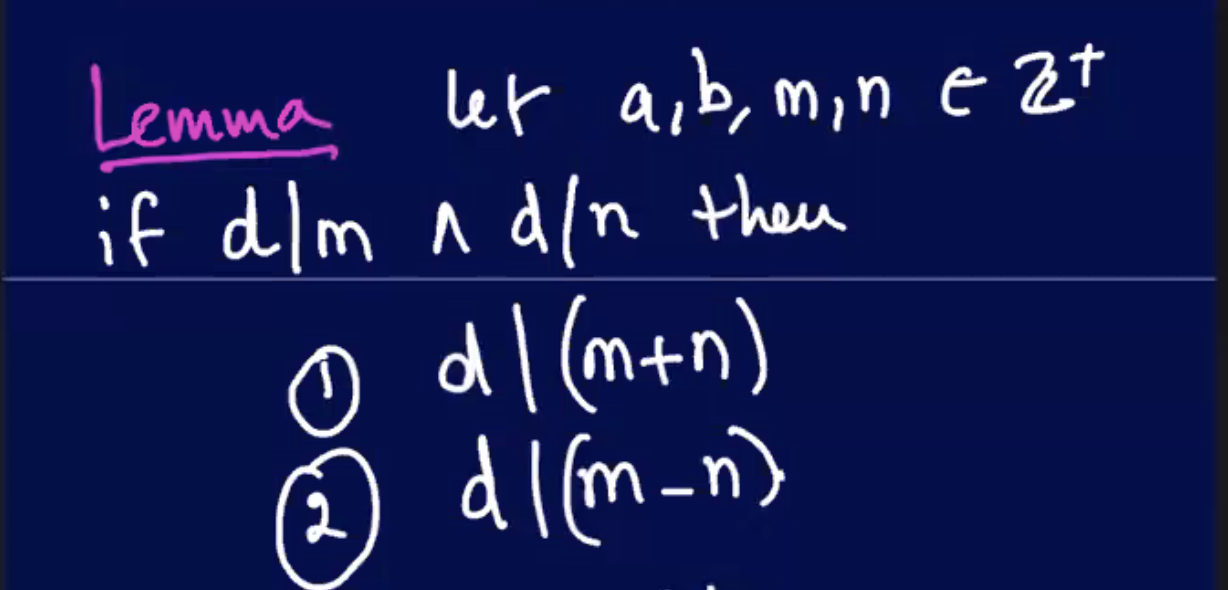 Lemma let a, b, m, n ∈ ℤ⁺
if d|m ∧ d|n then
① d|(m+n)
② d|(m-n)